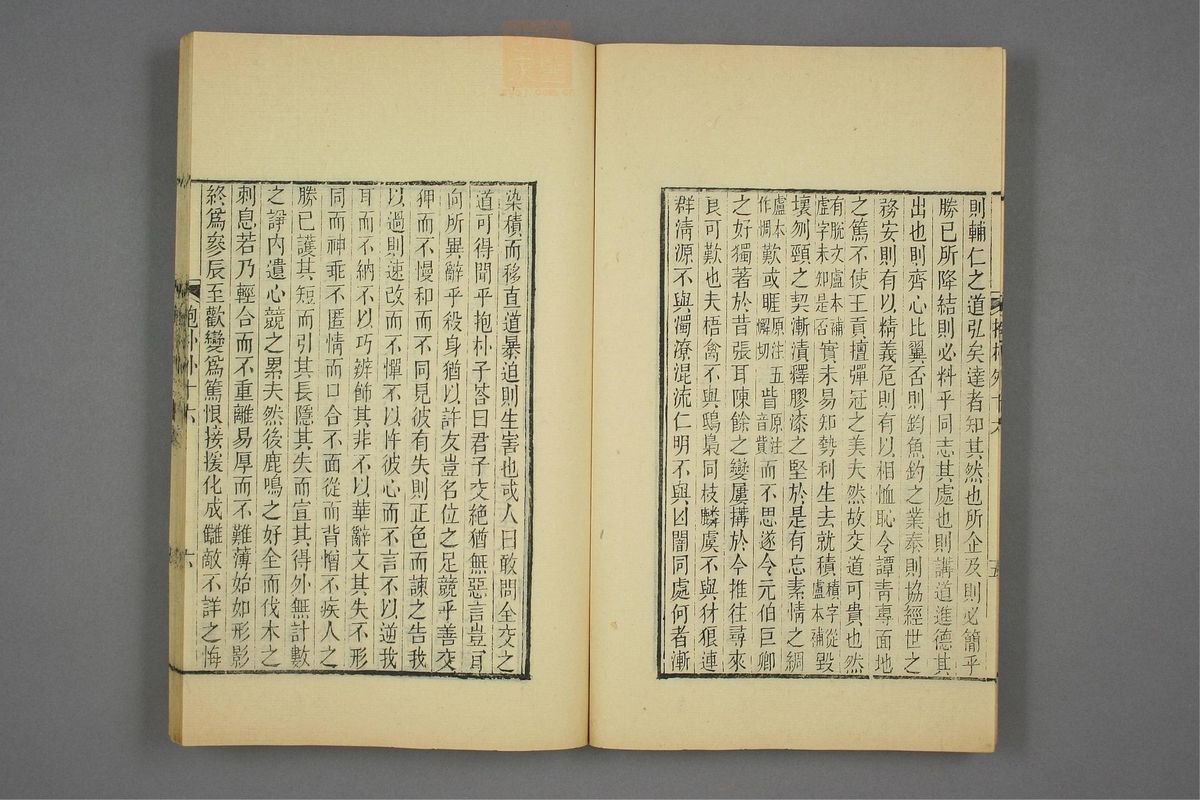 則輔仁之道弘矣達者知其然也所企及則必簡乎
勝已所降結則必料乎同志其處也則講道進德其
出也則齊心比翼否則鈞魚釣之業泰則協經世之
務安則有以精義危則有以相恤恥令譚靑專面地
之篤不使王貢擅彈冠之美夫然故交道可貴也然
有脫文盧本補虛字未知是否實未易知勢利生去就積積字從盧本補毀
壞刎頸之契漸漬釋膠漆之堅於是有忘素情之綢
盧本作惆歎或睚原注五懈切眥原注音貲而不思遂令元伯巨卿
之好獨著於昔張耳陳餘之變屢搆於今推往尋來
良可歎也夫梧禽不與鴟梟同枝麟虞不與豺狼連
群淸源不與濁潦混流仁明不與凶闇同處何者漸
染積而移直道暴迫則生害也或人曰敢問全交之
道可得聞乎抱朴子答曰君子交絶猶無惡言豈肎
向所異辭乎殺身猶以許友豈名位之足競乎善交
狎而不慢和而不同見彼有失則正色而諫之告我
以過則速改而不憚不以忤彼心而不言不以逆我
耳而不納不以巧辨飾其非不以華辭文其失不形
同而神乖不匿情而口合不面從而背憎不疾人之
勝已護其短而引其長隱其失而宣其得外無計數
之諍內遺心競之累夫然後鹿鳴之好全而伐木之
刺息若乃輕合而不重離易厚而不難薄始如形影
終爲參辰至歡變爲篤恨接援化成讎敵不詳之悔
抱朴外十六
六